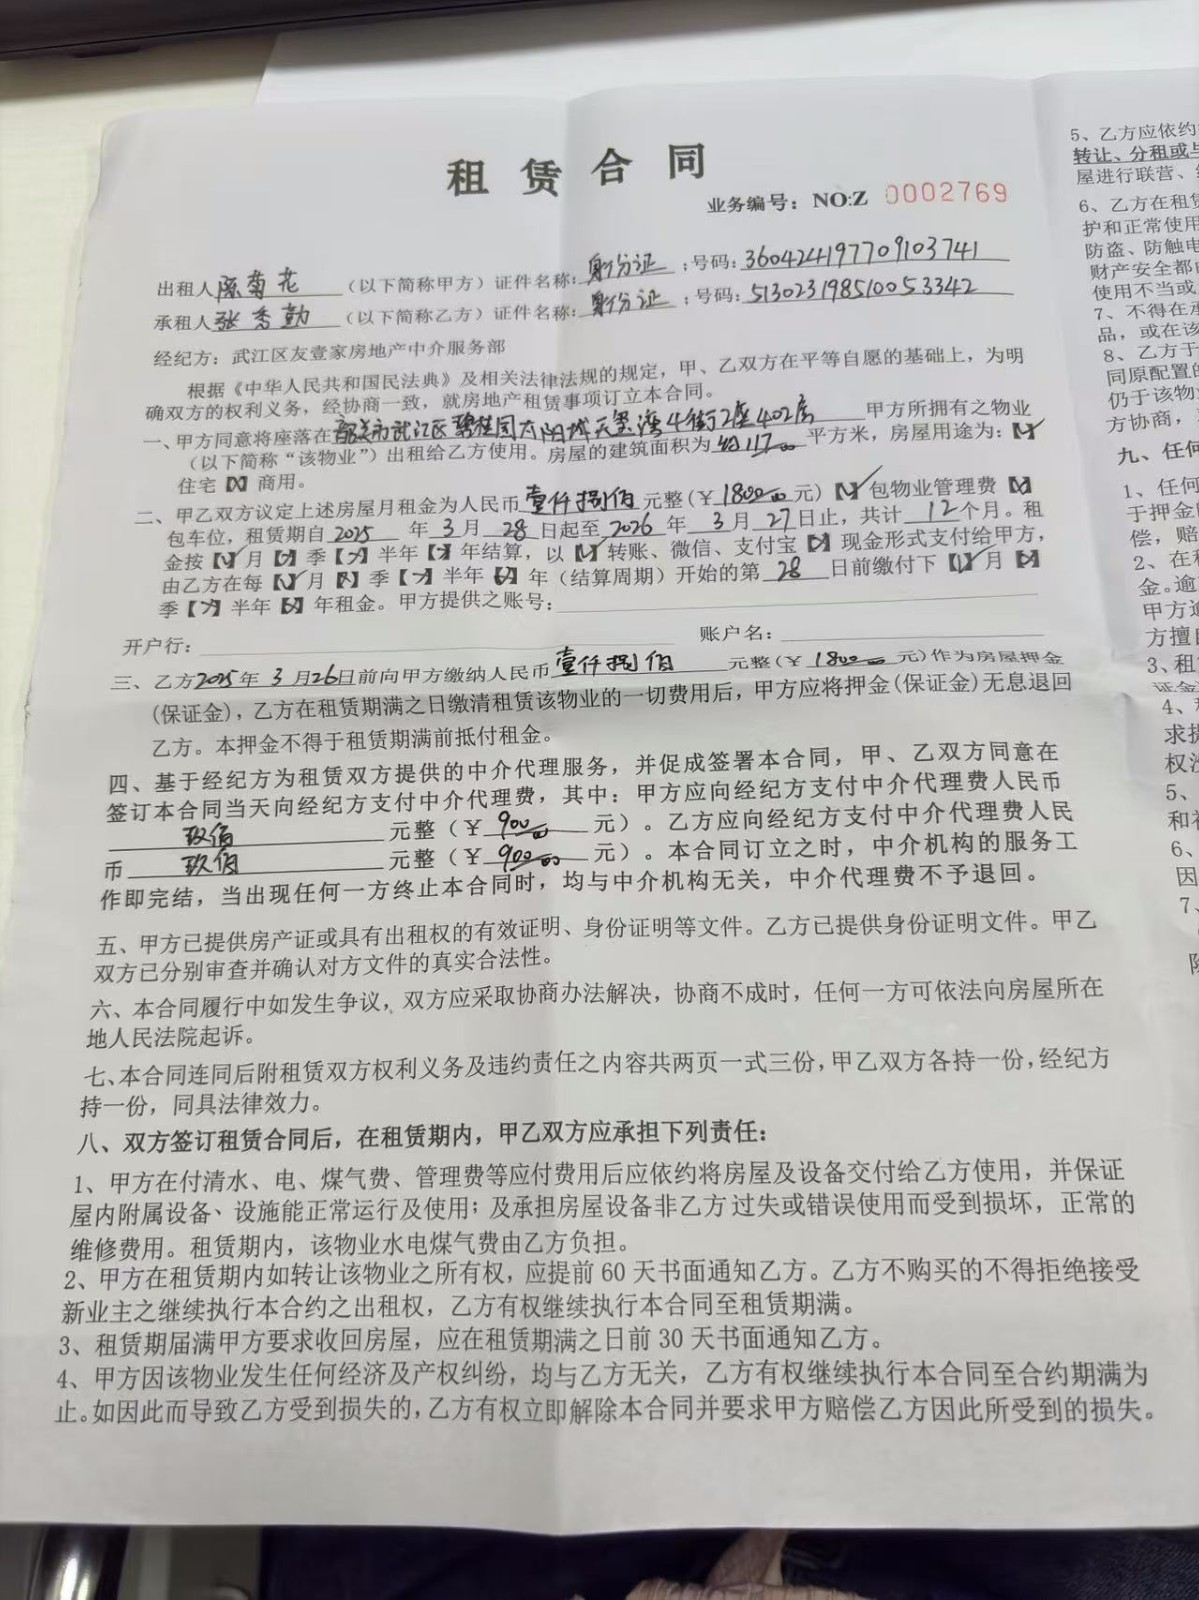 租赁合同
业务编号：NO:Z 0002769
出租人陈菊花（以下简称甲方）证件名称：身份证；号码：360424197709103741
承租人张秀勤（以下简称乙方）证件名称：身份证；号码：513023198510053342
经纪方：武江区友壹家房地产中介服务部
根据《中华人民共和国民法典》及相关法律法规的规定，甲、乙双方在平等自愿的基础上，为明
确双方的权利义务，经协商一致，就房地产租赁事项订立本合同。
一、甲方同意将座落在韶关市武江区碧桂园太阳城天玺湾4街2座402房甲方所拥有之物业
（以下简称“该物业”）出租给乙方使用。房屋的建筑面积为约117.00平方米，房屋用途为：【✓】
住宅【×】商用。
二、甲乙双方议定上述房屋月租金为人民币壹仟捌佰元整（￥1800.00元）【✓】包物业管理费【×】
包车位，租赁期自2025年3月28日起至2026年3月27日止，共计12个月。租
金按【✓】月【×】季【×】半年【×】年结算，以【✓】转账、微信、支付宝【×】现金形式支付给甲方，
由乙方在每【✓】月【×】季【×】半年【×】年（结算周期）开始的第28日前缴付下【✓】月【×】
季【×】半年【×】年租金。甲方提供之账号：
开户行： 账户名：
三、乙方2025年3月26日前向甲方缴纳人民币壹仟捌佰元整（￥1800.00元）作为房屋押金
（保证金），乙方在租赁期满之日缴清租赁该物业的一切费用后，甲方应将押金（保证金）无息退回
乙方。本押金不得于租赁期满前抵付租金。
四、基于经纪方为租赁双方提供的中介代理服务，并促成签署本合同，甲、乙双方同意在
签订本合同当天向经纪方支付中介代理费，其中：甲方应向经纪方支付中介代理费人民币
玖佰元整（￥900.00元）。乙方应向经纪方支付中介代理费人民
币玖佰元整（￥900.00元）。本合同订立之时，中介机构的服务工
作即完结，当出现任何一方终止本合同时，均与中介机构无关，中介代理费不予退回。
五、甲方已提供房产证或具有出租权的有效证明、身份证明等文件。乙方已提供身份证明文件。甲乙
双方已分别审查并确认对方文件的真实合法性。
六、本合同履行中如发生争议，双方应采取协商办法解决，协商不成时，任何一方可依法向房屋所在
地人民法院起诉。
七、本合同连同后附租赁双方权利义务及违约责任之内容共两页一式三份，甲乙双方各持一份，经纪方
持一份，同具法律效力。
八、双方签订租赁合同后，在租赁期内，甲乙双方应承担下列责任：
1、甲方在付清水、电、煤气费、管理费等应付费用后应依约将房屋及设备交付给乙方使用，并保证
屋内附属设备、设施能正常运行及使用；及承担房屋设备非乙方过失或错误使用而受到损坏，正常的
维修费用。租赁期内，该物业水电煤气费由乙方负担。
2、甲方在租赁期内如转让该物业之所有权，应提前60天书面通知乙方。乙方不购买的不得拒绝接受
新业主之继续执行本合约之出租权，乙方有权继续执行本合同至租赁期满。
3、租赁期届满甲方要求收回房屋，应在租赁期满之日前30天书面通知乙方。
4、甲方因该物业发生任何经济及产权纠纷，均与乙方无关，乙方有权继续执行本合同至合约期满为
止。如因此而导致乙方受到损失的，乙方有权立即解除本合同并要求甲方赔偿乙方因此所受到的损失。
5、乙方应依约
转让、分租或与
屋进行联营、
6、乙方在租赁
护和正常使用
防盗、防触电
财产安全都由
使用不当或
7、不得在承
品，或在该
8、乙方于
同原配置的
仍于该物业
方协商，
九、任何
1、任何
于押金
偿，赔
2、在租
金。逾
甲方逾
方擅自
3、租
证金
4、
求损
权没
5、
和
6、
因
7、